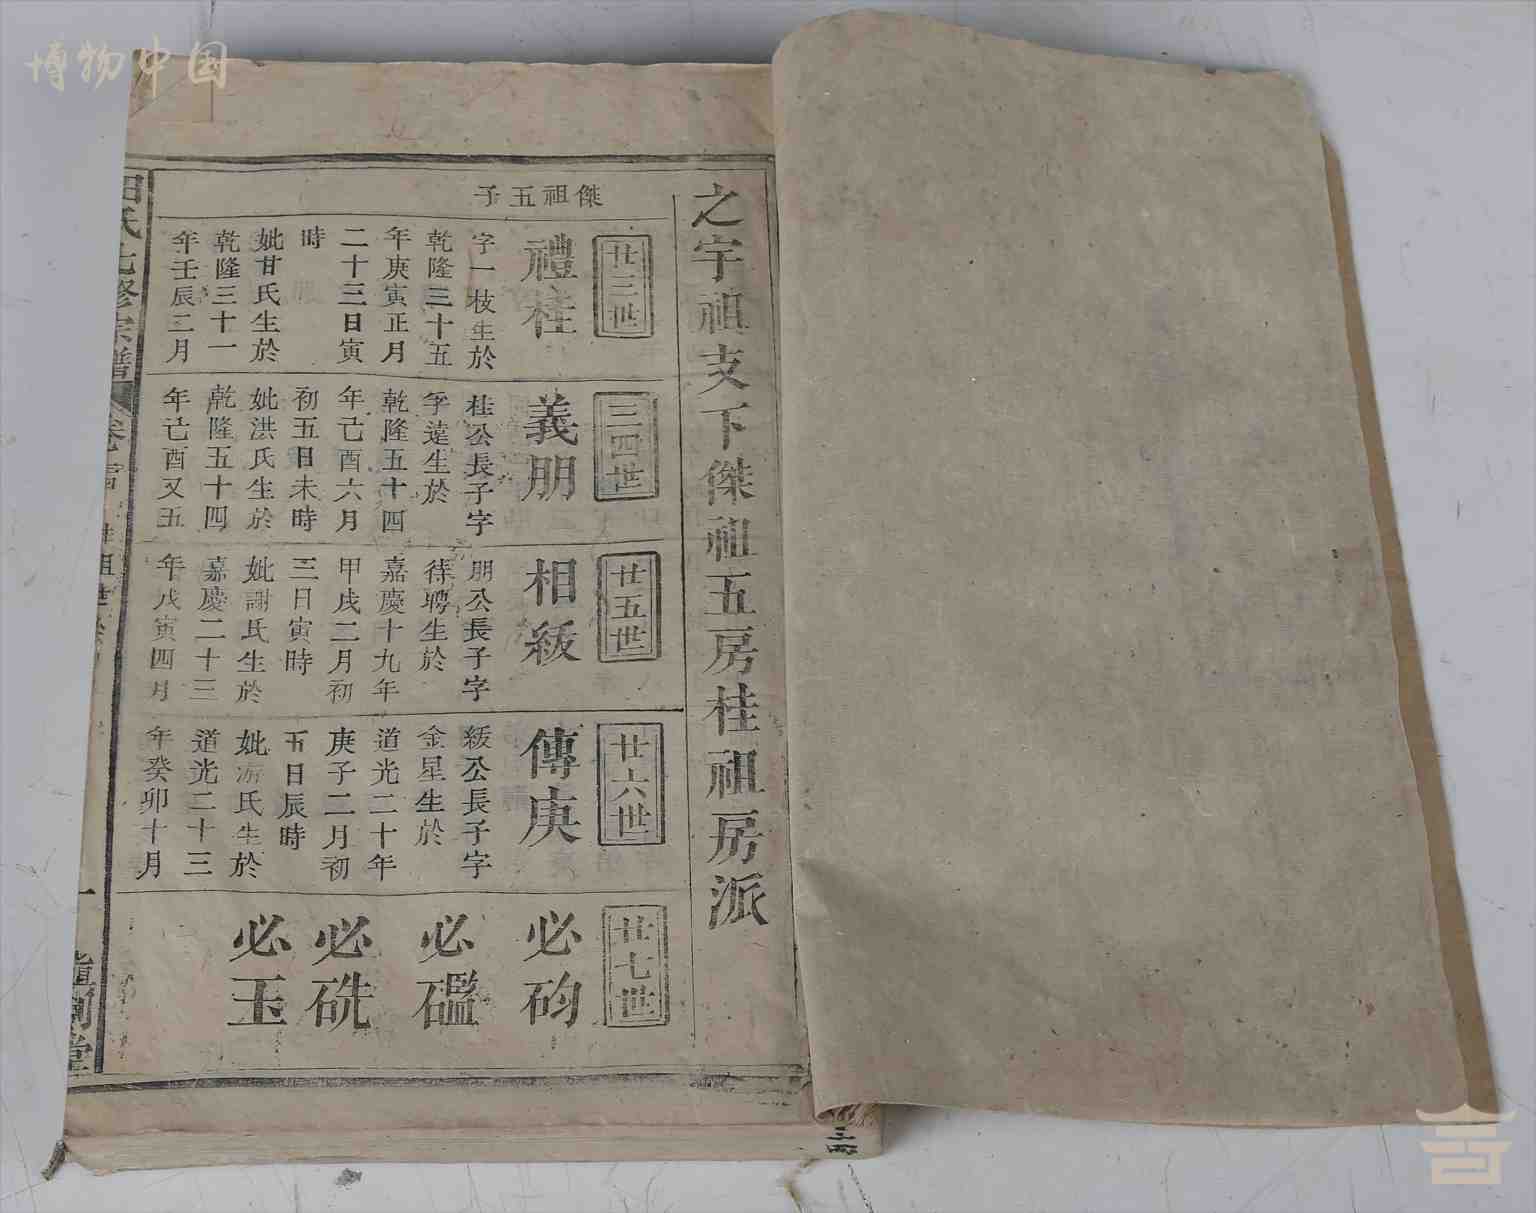 博物中国
之宇祖支下傑祖五房桂祖房派
傑祖五子
廿三世
禮桂
字一枝生於
乾隆三十五
年庚寅正月
二十三日寅
時
妣甘氏生於
乾隆三十一
年壬辰二月
二四世
義朋
桂公長子字
孚遠生於
乾隆五十四
年己酉六月
初五日未時
妣洪氏生於
乾隆五十四
年己酉又五
廿五世
相級
朋公長子字
徐聘生於
嘉慶十九年
甲戌二月初
三日寅時
妣謝氏生於
嘉慶二十三
年戊寅四月
廿六世
傳庚
級公長子字
金星生於
道光二十年
庚子二月初
五日辰時
妣游氏生於
道光二十三
年癸卯十月
廿七世
必砃
必礛
必硄
必玉
氏七修宗譜
卷
祖世
一
堂
三四